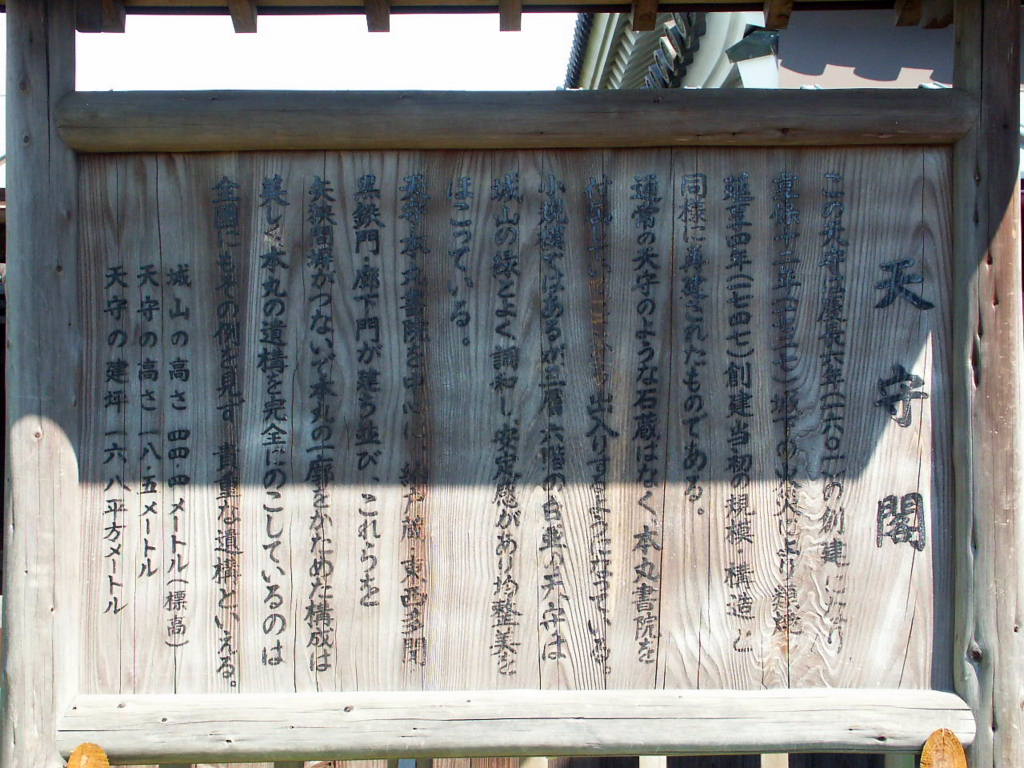 天守閣
この天守は慶長六年(一六〇一)の創建になり
享保十二年(一七二七)城下の大火により類焼
延享四年(一七四七)創建当初の規模・構造と
同様に再建されたものである。
通常の天守のような石蔵はなく、本丸書院を
出入りするようになっている。
小規模ではあるが三層六階の白亜の天守は
城山の緑とよく調和し、安定感があり均整美を
ほこっている。
天守本丸書院を中心に、納戸蔵・東西多聞
黒鉄門・廊下門が建ち並び、これらを
矢狭間塀がつないで本丸の一廓をかためた構成は
美しく、本丸の遺構を完全にのこしているのは
全国にもその例を見ず、貴重な遺構といえる。
城山の高さ 四四・四メートル(標高)
天守の高さ 一八・五メートル
天守の建坪 一六・八平方メートル